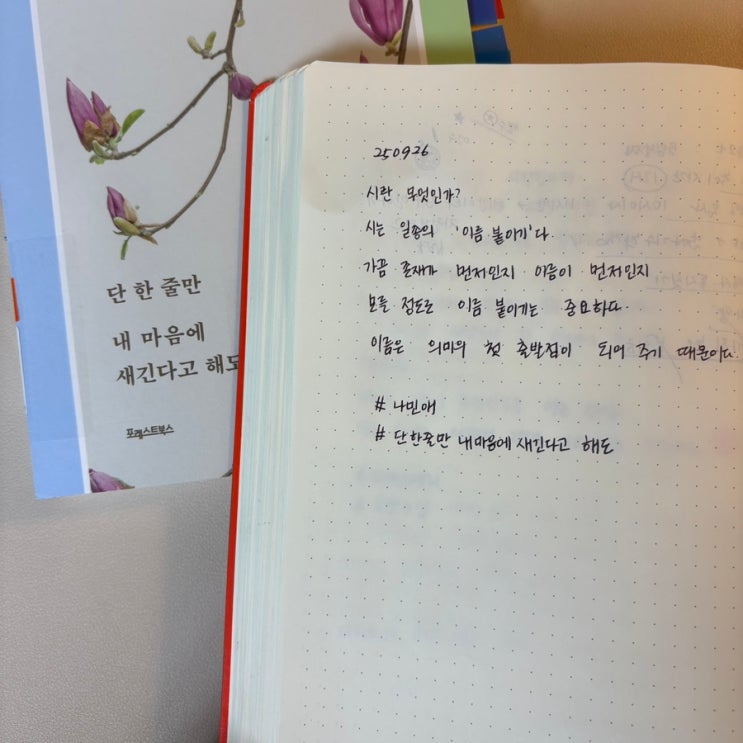 단 한 줄만
내 마음에
새긴다고 해도
포레스트북스
250926
시란 무엇인가?
시는 일종의 '이름 붙이기'다.
가끔 존재가 먼저인지 이름이 먼저인지
모를 정도로 이름 붙이기는 중요하다.
이름은 의미의 첫 출발점이 되어 주기 때문이다.
# 나민애
# 단 한줄만 내 마음에 새긴다고 해도